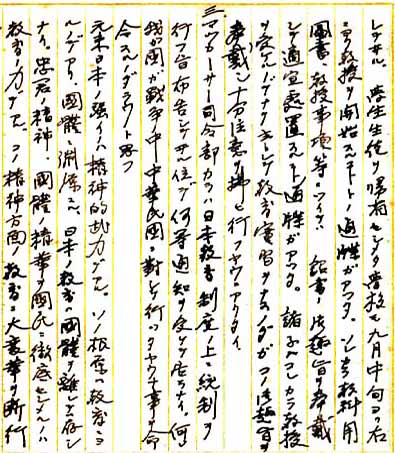 学生生徒ヲ帰省セシメタ学校モ九月中旬ヨリ
ヨリ教授ヲ開始スル トノ通牒ガアツタ。 教科用
圖書、教授事項等ニツイテハ 詔書ノ御趣旨ヲ奉戴
シテ適宜處置スベシトノ通牒ガアツタ。諸子ハコレカラ教授
ヲ受ケル 教育實習ヲナスノダガコノ御趣旨ヲ
奉戴シ十分注意ヲ拂ヒ行フヤウニアリタイ
三、マツカーサー司令部カラハ日本教育制度ノ上ニ統制ヲ
行フ旨布告シテヰル位デ何等通知ヲ受ケテ居ラナイ。何レ
我ガ國ガ戰争中中華民國ニ對シテ行ツタヤウナ事ヲ命
令スルダラウト思フ
元来日本ノ強イノハ精神的武力デアル。ソノ根底ハ教育ニヨ
ルノデアリ、國體ノ淵源ハ、日本ノ教育ハ國體ヲ離レテ存シ
ナイ。忠君ノ精神、國體ノ精華ヲ國民ニ徹底セシメルノハ
教育ノ力デアル。コノ精神方面ノ教育ニ大変革ヲ断行